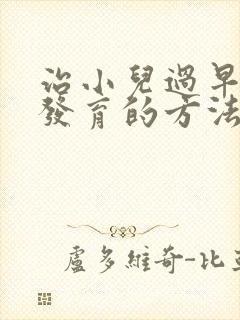 治小兒過早
發育的方法
盧多維奇-比